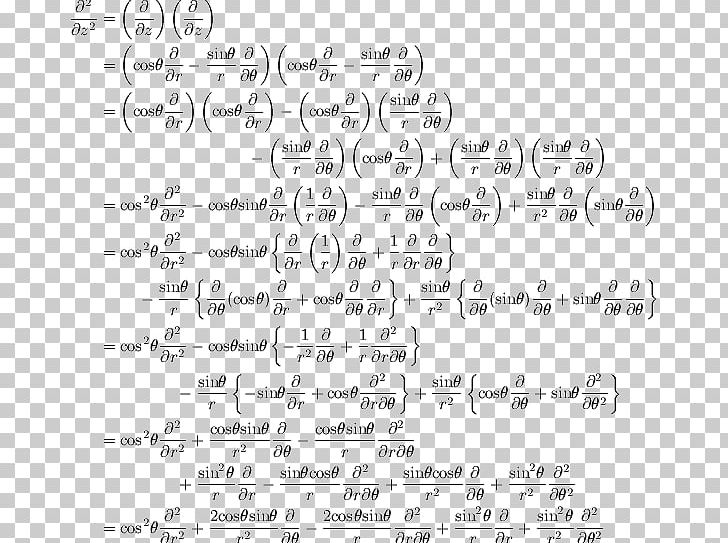 ∂²/∂z² = (∂/∂z)(∂/∂z)
= (cosθ ∂/∂r − sinθ/r ∂/∂θ)(cosθ ∂/∂r − sinθ/r ∂/∂θ)
= (cosθ ∂/∂r)(cosθ ∂/∂r) − (cosθ ∂/∂r)(sinθ/r ∂/∂θ)
− (sinθ/r ∂/∂θ)(cosθ ∂/∂r) + (sinθ/r ∂/∂θ)(sinθ/r ∂/∂θ)
= cos²θ ∂²/∂r² − cosθsinθ ∂/∂r (1/r ∂/∂θ) − sinθ/r ∂/∂θ (cosθ ∂/∂r) + sinθ/r² ∂/∂θ (sinθ ∂/∂θ)
= cos²θ ∂²/∂r² − cosθsinθ {∂/∂r (1/r) ∂/∂θ + 1/r ∂/∂r ∂/∂θ}
− sinθ/r {∂/∂θ (cosθ) ∂/∂r + cosθ ∂/∂θ ∂/∂r} + sinθ/r² {∂/∂θ (sinθ) ∂/∂θ + sinθ ∂/∂θ ∂/∂θ}
= cos²θ ∂²/∂r² − cosθsinθ {−1/r² ∂/∂θ + 1/r ∂²/∂r∂θ}
− sinθ/r {−sinθ ∂/∂r + cosθ ∂²/∂r∂θ} + sinθ/r² {cosθ ∂/∂θ + sinθ ∂²/∂θ²}
= cos²θ ∂²/∂r² + cosθsinθ/r² ∂/∂θ − cosθsinθ/r ∂²/∂r∂θ
+ sin²θ/r ∂/∂r − sinθcosθ/r ∂²/∂r∂θ + sinθcosθ/r² ∂/∂θ + sin²θ/r² ∂²/∂θ²
= cos²θ ∂²/∂r² + 2cosθsinθ/r² ∂/∂θ − 2cosθsinθ/r ∂²/∂r∂θ + sin²θ/r ∂/∂r + sin²θ/r² ∂²/∂θ²